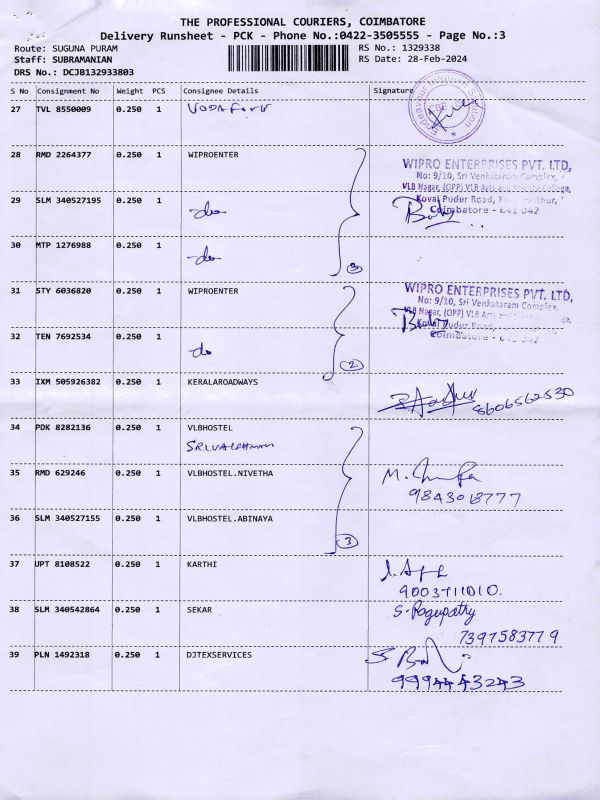 THE PROFESSIONAL COURIERS, COIMBATORE
Delivery Runsheet - PCK - Phone No.:0422-3505555 - Page No.:3
Route: SUGUNA PURAM RS No.: 1329338
Staff: SUBRAMANIAN RS Date: 28-Feb-2024
DRS No.: DCJB132933803
S No Consignment No Weight PCS Consignee Details Signature
27 TVL 8550009 0.250 1 VODAFONE
28 RMD 2264377 0.250 1 WIPROENTER
WIPRO ENTERPRISES PVT. LTD,
No: 9/10, Sri Venkataram Complex,
VLB Nagar, (OPP) VLB Arts and Science College,
29 SLM 340527195 0.250 1 -do-
Kovai Pudur Road,
Coimbatore - 641 042
30 MTP 1276988 0.250 1 -do-
3
31 STY 6036820 0.250 1 WIPROENTER
WIPRO ENTERPRISES PVT. LTD,
No: 9/10, Sri Venkataram Complex,
VLB Nagar, (OPP) VLB Arts and College,
Kovai Pudur Road,
32 TEN 7692534 0.250 1 -do-
Coimbatore - 641 042
2
33 IXM 505926382 0.250 1 KERALAROADWAYS
8606562530
34 PDK 8282136 0.250 1 VLBHOSTEL
35 RMD 629246 0.250 1 VLBHOSTEL.NIVETHA
9843018777
36 SLM 340527155 0.250 1 VLBHOSTEL.ABINAYA
3
37 UPT 8108522 0.250 1 KARTHI
9003711010.
38 SLM 340542864 0.250 1 SEKAR S. Ragupathy
7397583779
39 PLN 1492318 0.250 1 DJTEXSERVICES
9994443243